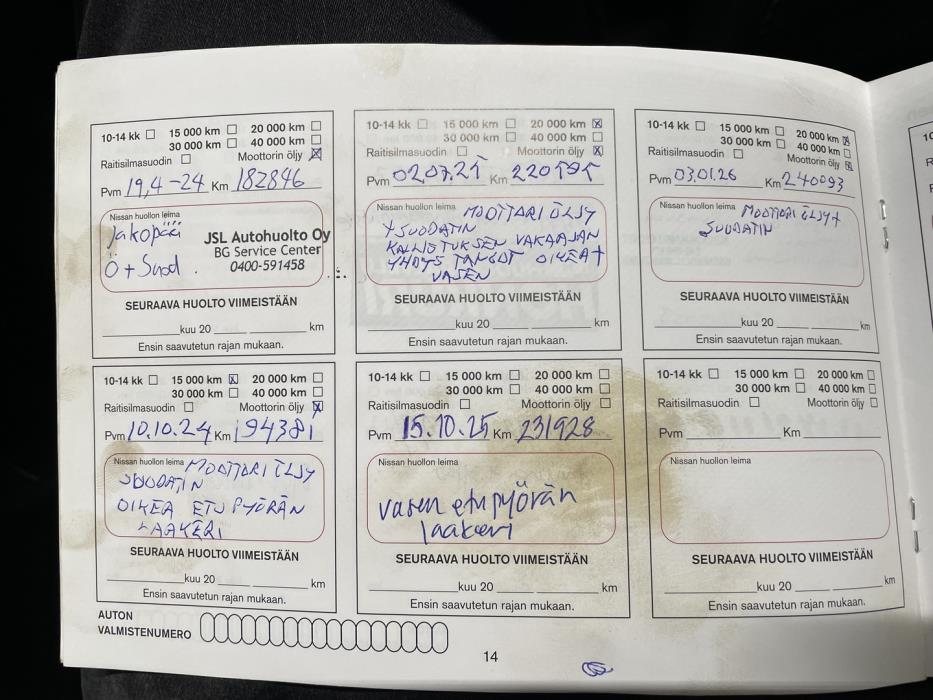 10-14 kk 15 000 km 20 000 km
30 000 km 40 000 km
Raitisilmasuodin Moottorin öljy
Pvm 19,4-24 Km 182846
Nissan huollon leima
Jakopää
Ö + Suod.
JSL Autohuolto Oy
BG Service Center
0400-591458
SEURAAVA HUOLTO VIIMEISTÄÄN
kuu 20 km
Ensin saavutetun rajan mukaan.
10-14 kk 15 000 km 20 000 km
30 000 km 40 000 km
Raitisilmasuodin Moottorin öljy
Pvm 02.07.25 Km
Nissan huollon leima MOOTTORI ÖLJY
+ SUODATIN
KALLISTUKSEN VAKAAJAN
YHDYS TANGOT OIKEA +
VASEN
SEURAAVA HUOLTO VIIMEISTÄÄN
kuu 20 km
Ensin saavutetun rajan mukaan.
10-14 kk 15 000 km 20 000 km
30 000 km 40 000 km
Raitisilmasuodin Moottorin öljy
Pvm 03.01.26 Km 240093
Nissan huollon leima MOOTTORI ÖLJY +
SUODATIN
SEURAAVA HUOLTO VIIMEISTÄÄN
kuu 20 km
Ensin saavutetun rajan mukaan.
10-14 kk 15 000 km 20 000 km
30 000 km 40 000 km
Raitisilmasuodin Moottorin öljy
Pvm 10.10.24 Km 194381
Nissan huollon leima MOOTTORI ÖLJY
SUODATIN
OIKEA ETU PYÖRÄN
LAAKERI
SEURAAVA HUOLTO VIIMEISTÄÄN
kuu 20 km
Ensin saavutetun rajan mukaan.
10-14 kk 15 000 km 20 000 km
30 000 km 40 000 km
Raitisilmasuodin Moottorin öljy
Pvm 15.10.25 Km 231928
Nissan huollon leima
vasen etupyörän
laakeri
SEURAAVA HUOLTO VIIMEISTÄÄN
kuu 20 km
Ensin saavutetun rajan mukaan.
10-14 kk 15 000 km 20 000 km
30 000 km 40 000 km
Raitisilmasuodin Moottorin öljy
Pvm Km
Nissan huollon leima
SEURAAVA HUOLTO VIIMEISTÄÄN
kuu 20 km
Ensin saavutetun rajan mukaan.
AUTON
VALMISTENUMERO
14